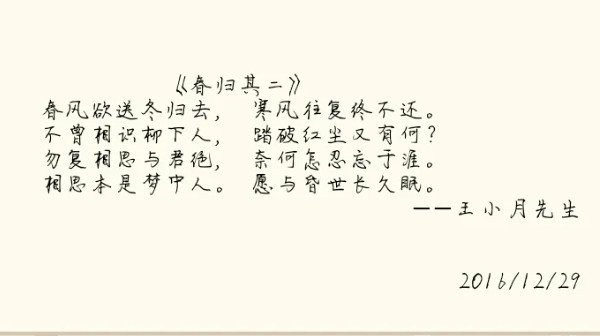 《春归其二》
春风欲送冬归去，寒风往复终不还。
不曾相识柳下人，踏破红尘又有何？
勿复相思与君绝，奈何怎忍忘于涯。
相思本是梦中人。愿与昏世长久眠。
——王小月先生
2016/12/29